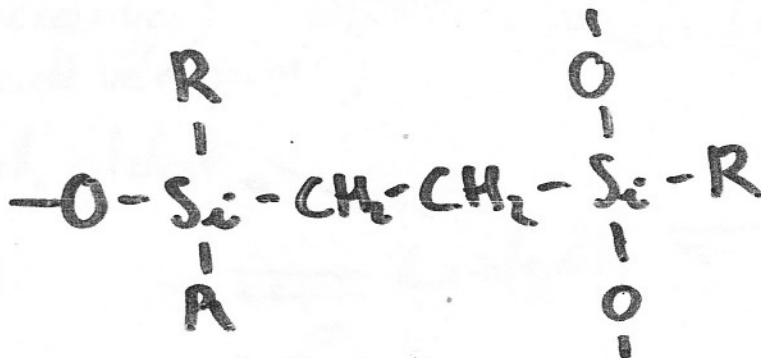 R O
—O-Si-CH₂-CH₂-Si-R
R O